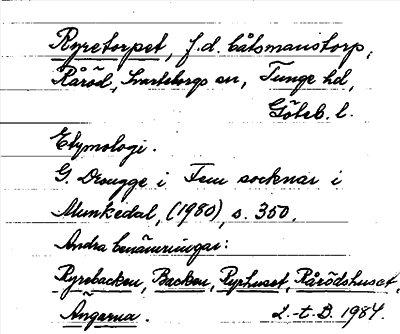 Ryretorpet, f.d. båtsmanstorp,
Råröd, Svarteborgs sn, Tunge hd,
Göteb. l.
Etymologi.
G. Drougge i Fem socknar i
Munkedal, (1980), s. 350.
Andra benämningar:
Ryrebacken, Backen, Ryrhuset, Rårödshuset,
Ängarna. L-t-D. 1984.